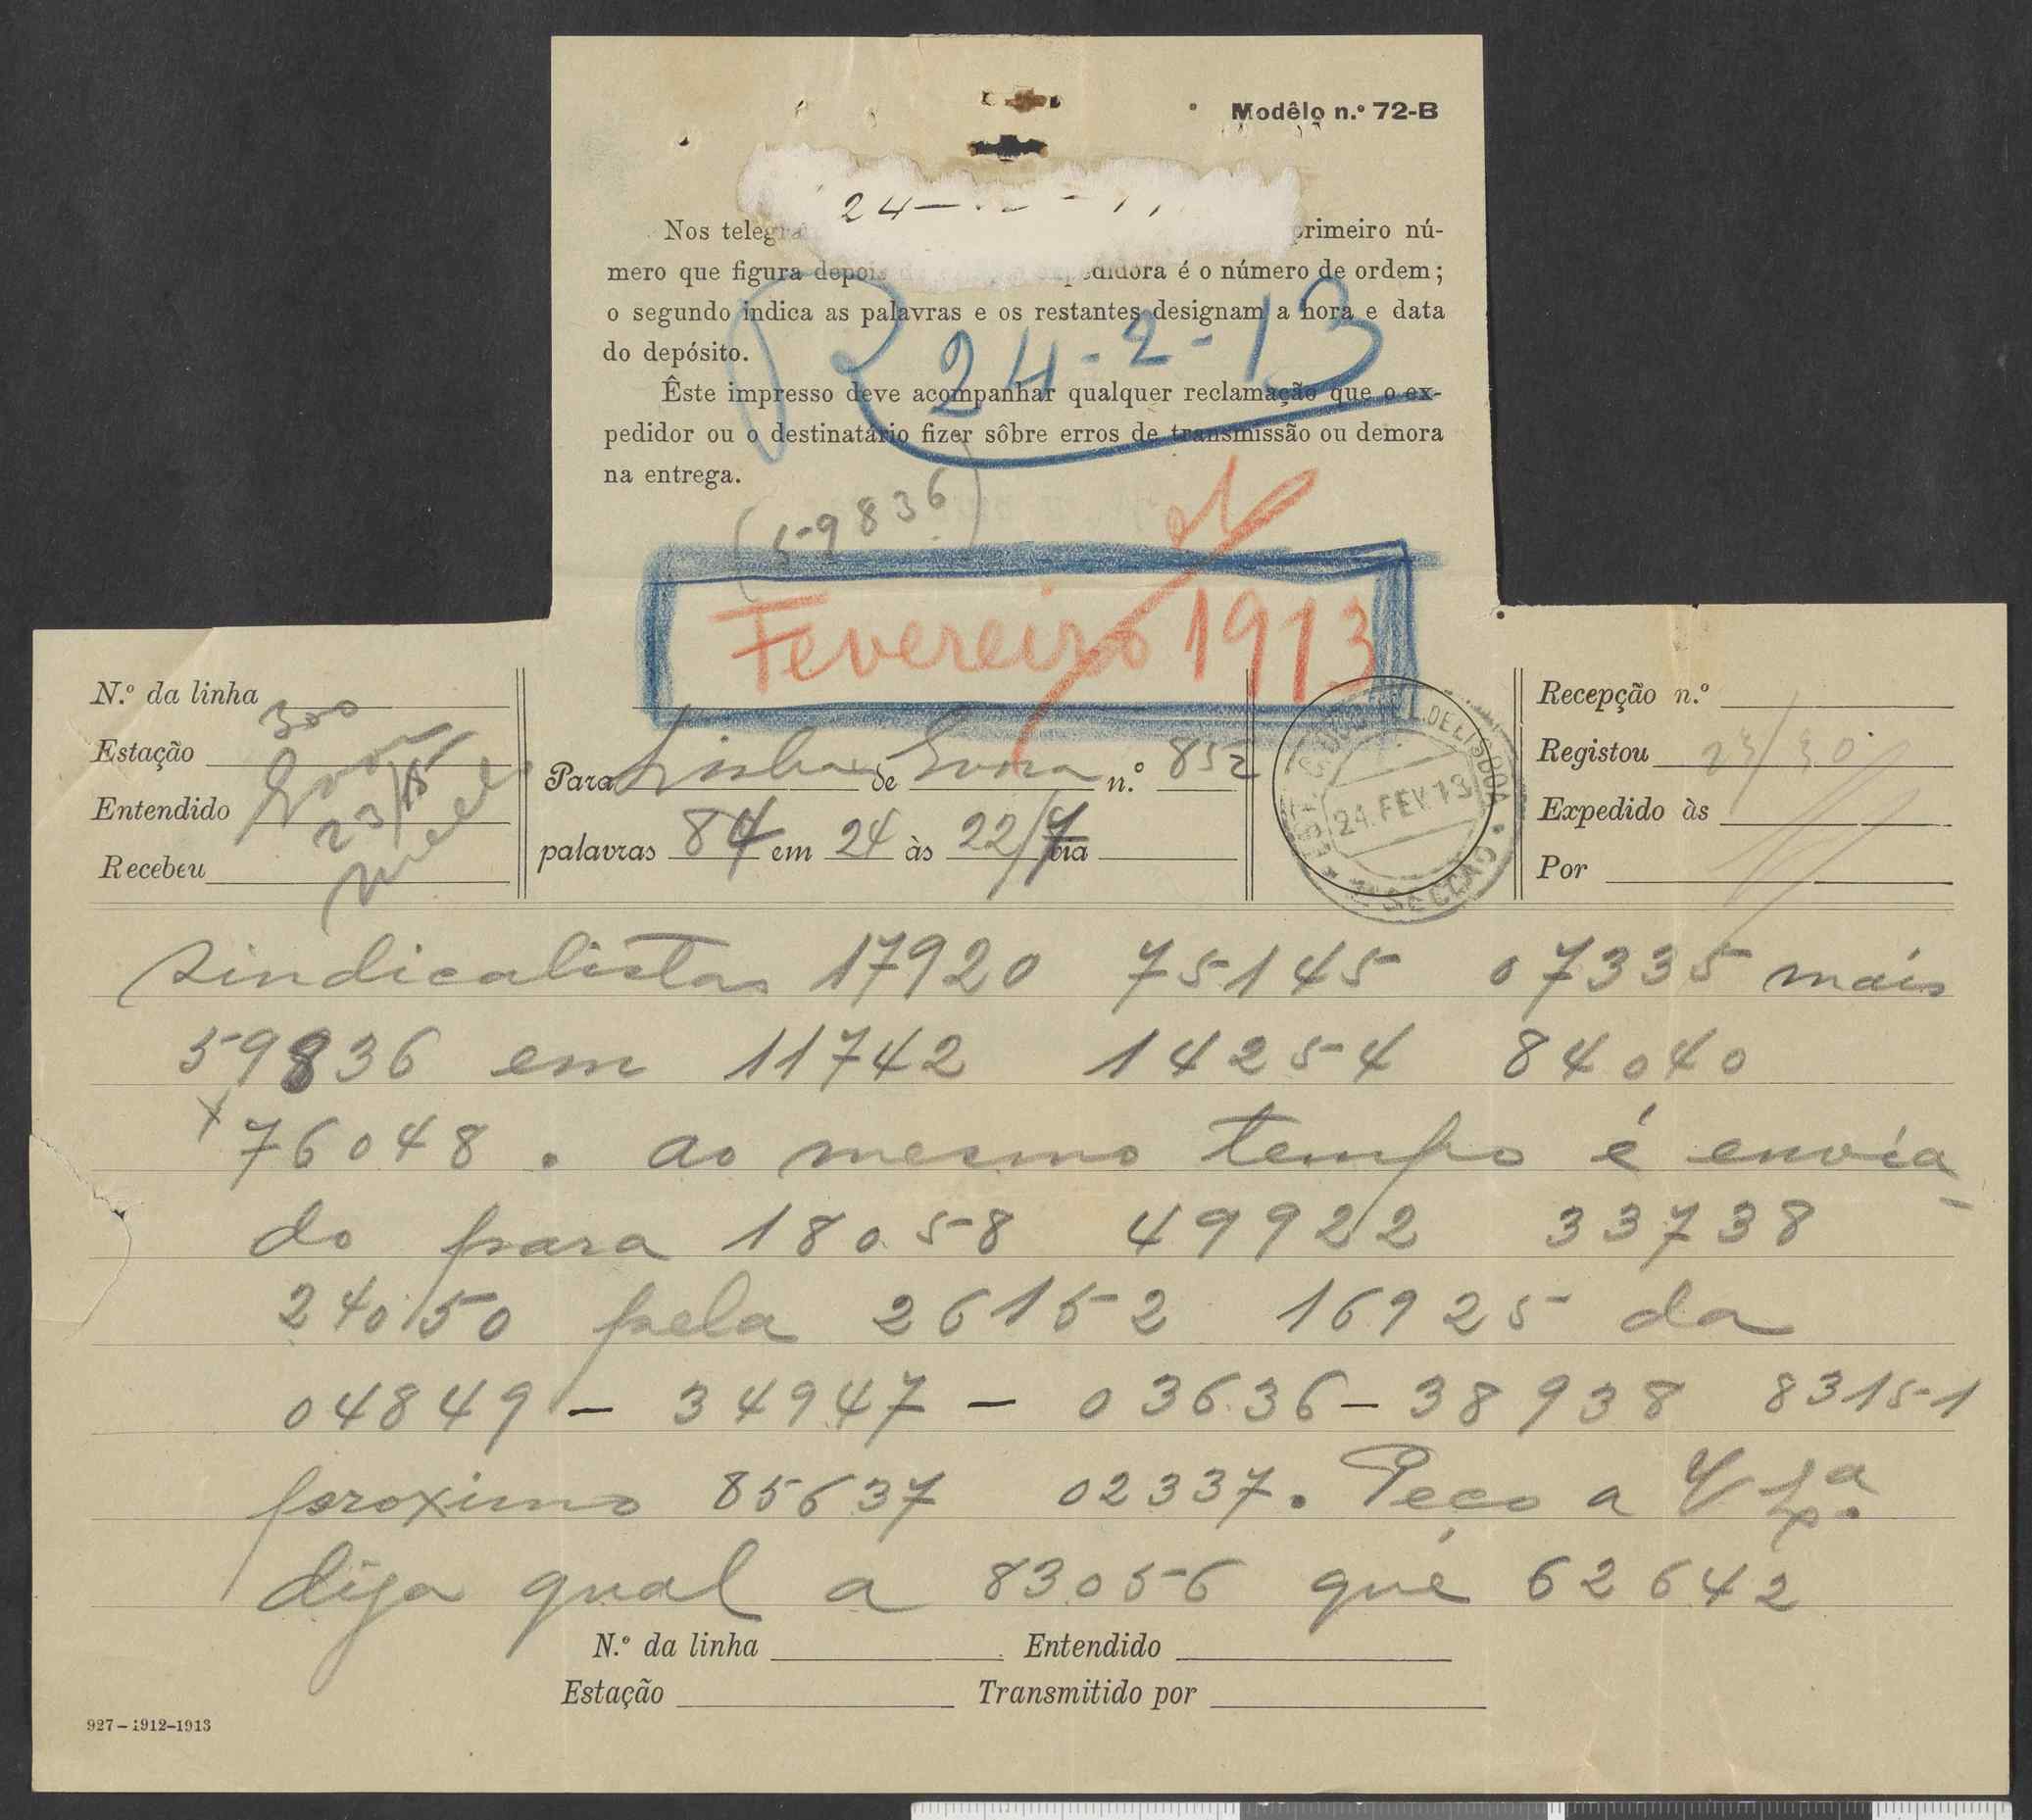 Modêlo n.º 72-B
24-
Nos telegra primeiro nú-
mero que figura depois expedidora é o número de ordem;
o segundo indica as palavras e os restantes designam a hora e data
do depósito.
R 24-2-13
Êste impresso deve acompanhar qualquer reclamação que o ex-
pedidor ou o destinatário fizer sôbre erros de transmissão ou demora
na entrega.
(59836)
Fevereiro 1913
N.º da linha 300
Estação
Entendido 23/15
Recebeu
Para Lisboa de Evora n.º 852
palavras 84 em 24 às 22/7 via
24.FEV.13
DE LISBOA
SECÇÃO
Recepção n.º
Registou 23/30
Expedido às
Por
sindicalistas 17920 75145 07335 máis
59836 em 11742 14254 84040
x 76048 . ao mesmo tempo é envia-
do para 18058 49922 33738
24050 pela 26152 16925 da
04849 - 34947 - 03636 - 38938 83151
proximo 85637 02337. Peço a V Exª.
diga qual a 83056 que 62642
N.º da linha Entendido
Estação Transmitido por
927-1912-1913